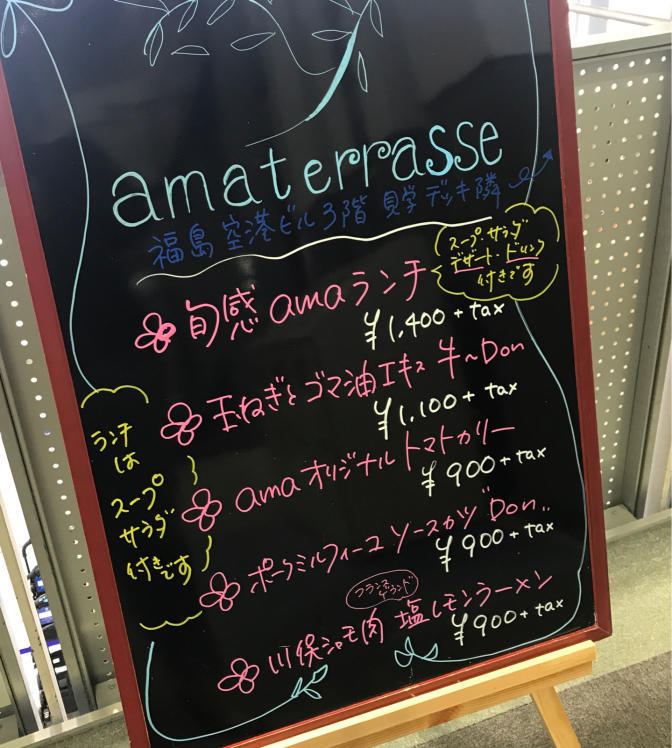 amaterrasse
福島空港ビル3階 見学デッキ隣
旬感 amaランチ
スープ・サラダ
デザート・ドリンク
付きです
¥1,400 + tax
玉ねぎとゴマ油エキス 牛〜Don
¥1,100 + tax
ama オリジナル トマトカリー
¥900 + tax
ポークミルフィーユ ソースカツ Don..
¥900 + tax
フランス
ゲランド
川俣シャモ肉 塩レモンラーメン
¥900 + tax
ランチ
は
スープ
サラダ
付きです